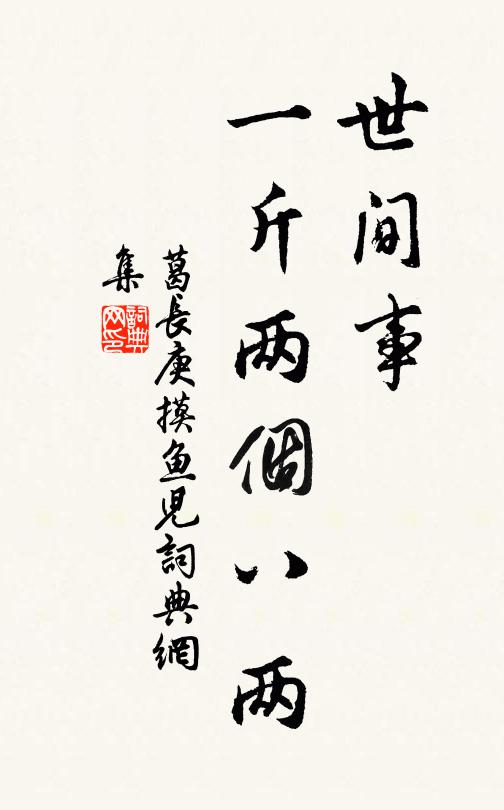 世间事
一斤两個八两
葛長庚摸鱼児詞典網
集
詞典
网印